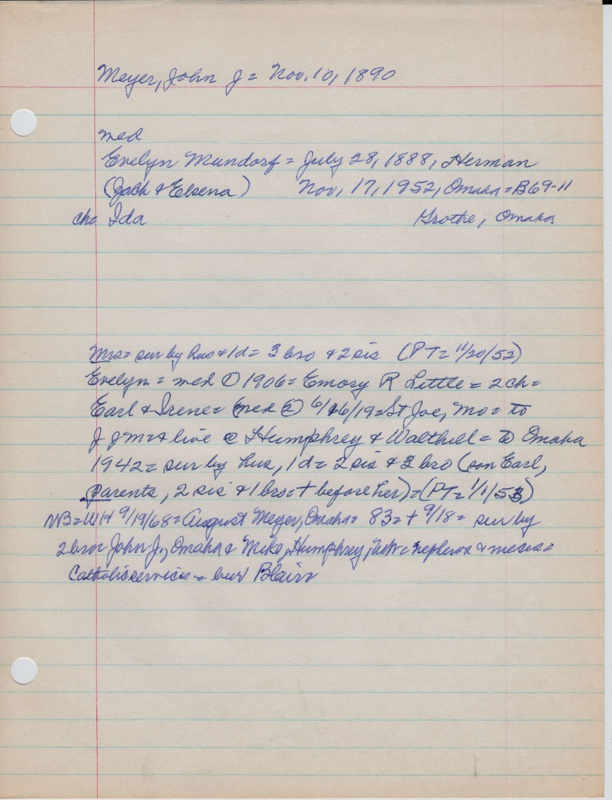 Meyer, John J = Nov. 10, 1890
med
Evelyn Mundorf = July 28, 1888, Herman
(Jack & Elsena) Nov. 17, 1952, Omaha = B69-11
ch = Ida Grothe, Omaha
Mrs = sur by hus & 1d = 3 bro & 2 sis (PT = 11/20/52)
Evelyn = med ① 1906 = Emory R Little = 2 ch =
Earl & Irene = med ② 6/16/19 = St Joe, Mo = to
J J m = & live @ Humphrey & Walthill = to Omaha
1942 = sur by hus, 1 d = 2 sis & 3 bro (son Earl,
parents, 2 sis & 1 bro = + before her) = (PT = 1/1/53)
NB = WH 9/19/68 = August Meyer, Omaha = 83 = + 9/18 = sur by
2 bro = John J., Omaha & Mike, Humphrey, = nephews & nieces =
Catholic services = bur Blair